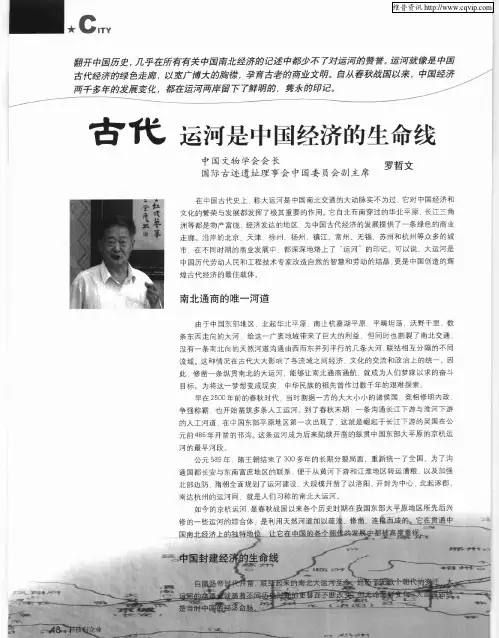 维普资讯 http://www.cqvip.com
★ CITY
翻开中国历史，几乎在所有有关中国南北经济的记述中都少不了对运河的赞誉。运河就像是中国
古代经济的绿色走廊，以宽广博大的胸襟，孕育古老的商业文明。自从春秋战国以来，中国经济
两千多年的发展变化，都在运河两岸留下了鲜明的、隽永的印记。
古代 运河是中国经济的生命线
中国文物学会会长
国际古迹遗址理事会中国委员会副主席
罗哲文
在中国古代史上，称大运河是中国南北交通的大动脉实不为过，它对中国经济和
文化的繁荣与发展都发挥了极其重要的作用。它自北而南穿过的华北平原、长江三角
洲等都是物产富饶、经济发达的地区，为中国古代经济的发展提供了一条绿色的商业
走廊。沿岸的北京、天津、徐州、扬州、镇江、常州、无锡、苏州和杭州等众多的城
市，在不同时期的商业发展中，都深深地烙上了“运河”的印记。可以说，大运河是
中国历代劳动人民和工程技术专家改造自然的智慧和劳动的结晶，更是中国创造的辉
煌古代经济的最佳载体。
南北通商的唯一河道
由于中国东部地区，北起华北平原，南止杭嘉湖平原，平畴坦荡，沃野千里，数
条东西走向的大河，给这一广袤地域带来了巨大的利益，但同时也割裂了南北交通，
没有一条南北向的天然河道沟通由西而东并列平行的几条大河，联结相互分隔的不同
流域。这种情况在古代大大影响了各流域之间经济、文化的交流和政治上的统一。因
此，修凿一条纵贯南北的大运河，能够让南北通商通航，就成为人们梦寐以求的奋斗
目标。为将这一梦想变成现实，中华民族的祖先曾作过数千年的艰难探索。
早在2500年前的春秋时代，当时割据一方的大大小小的诸侯国，竞相修明内政，
争强称霸，也开始凿筑多条人工运河。到了春秋末期，一条沟通长江下游与淮河下游
的人工河道，在中国东部平原地区第一次出现了，这就是崛起于长江下游的吴国在公
元前486年开凿的邗沟。这条运河成为后来陆续开凿的纵贯中国东部大平原的京杭运
河的最早河段。
公元589年，隋王朝结束了300多年的长期分裂局面，重新统一了全国。为了沟
通国都长安与东南富庶地区的联系，便于从黄河下游和江淮地区转运漕粮，以及加强
北部边防，隋朝全面规划了运河建设，大规模开凿了以洛阳、开封为中心，北起涿郡，
南达杭州的运河网，就是人们习称的南北大运河。
如今的京杭运河，是春秋战国以来各个历史时期在我国东部大平原地区所先后兴
修的一些运河的综合体，是利用天然河道加以疏浚、修凿、连接而成的。它在贯通中
国南北经济上的独特地位，让它在中国的各个朝代的发展中都被高度重视。
中国封建经济的生命线
是当时中国的经济命脉。
48